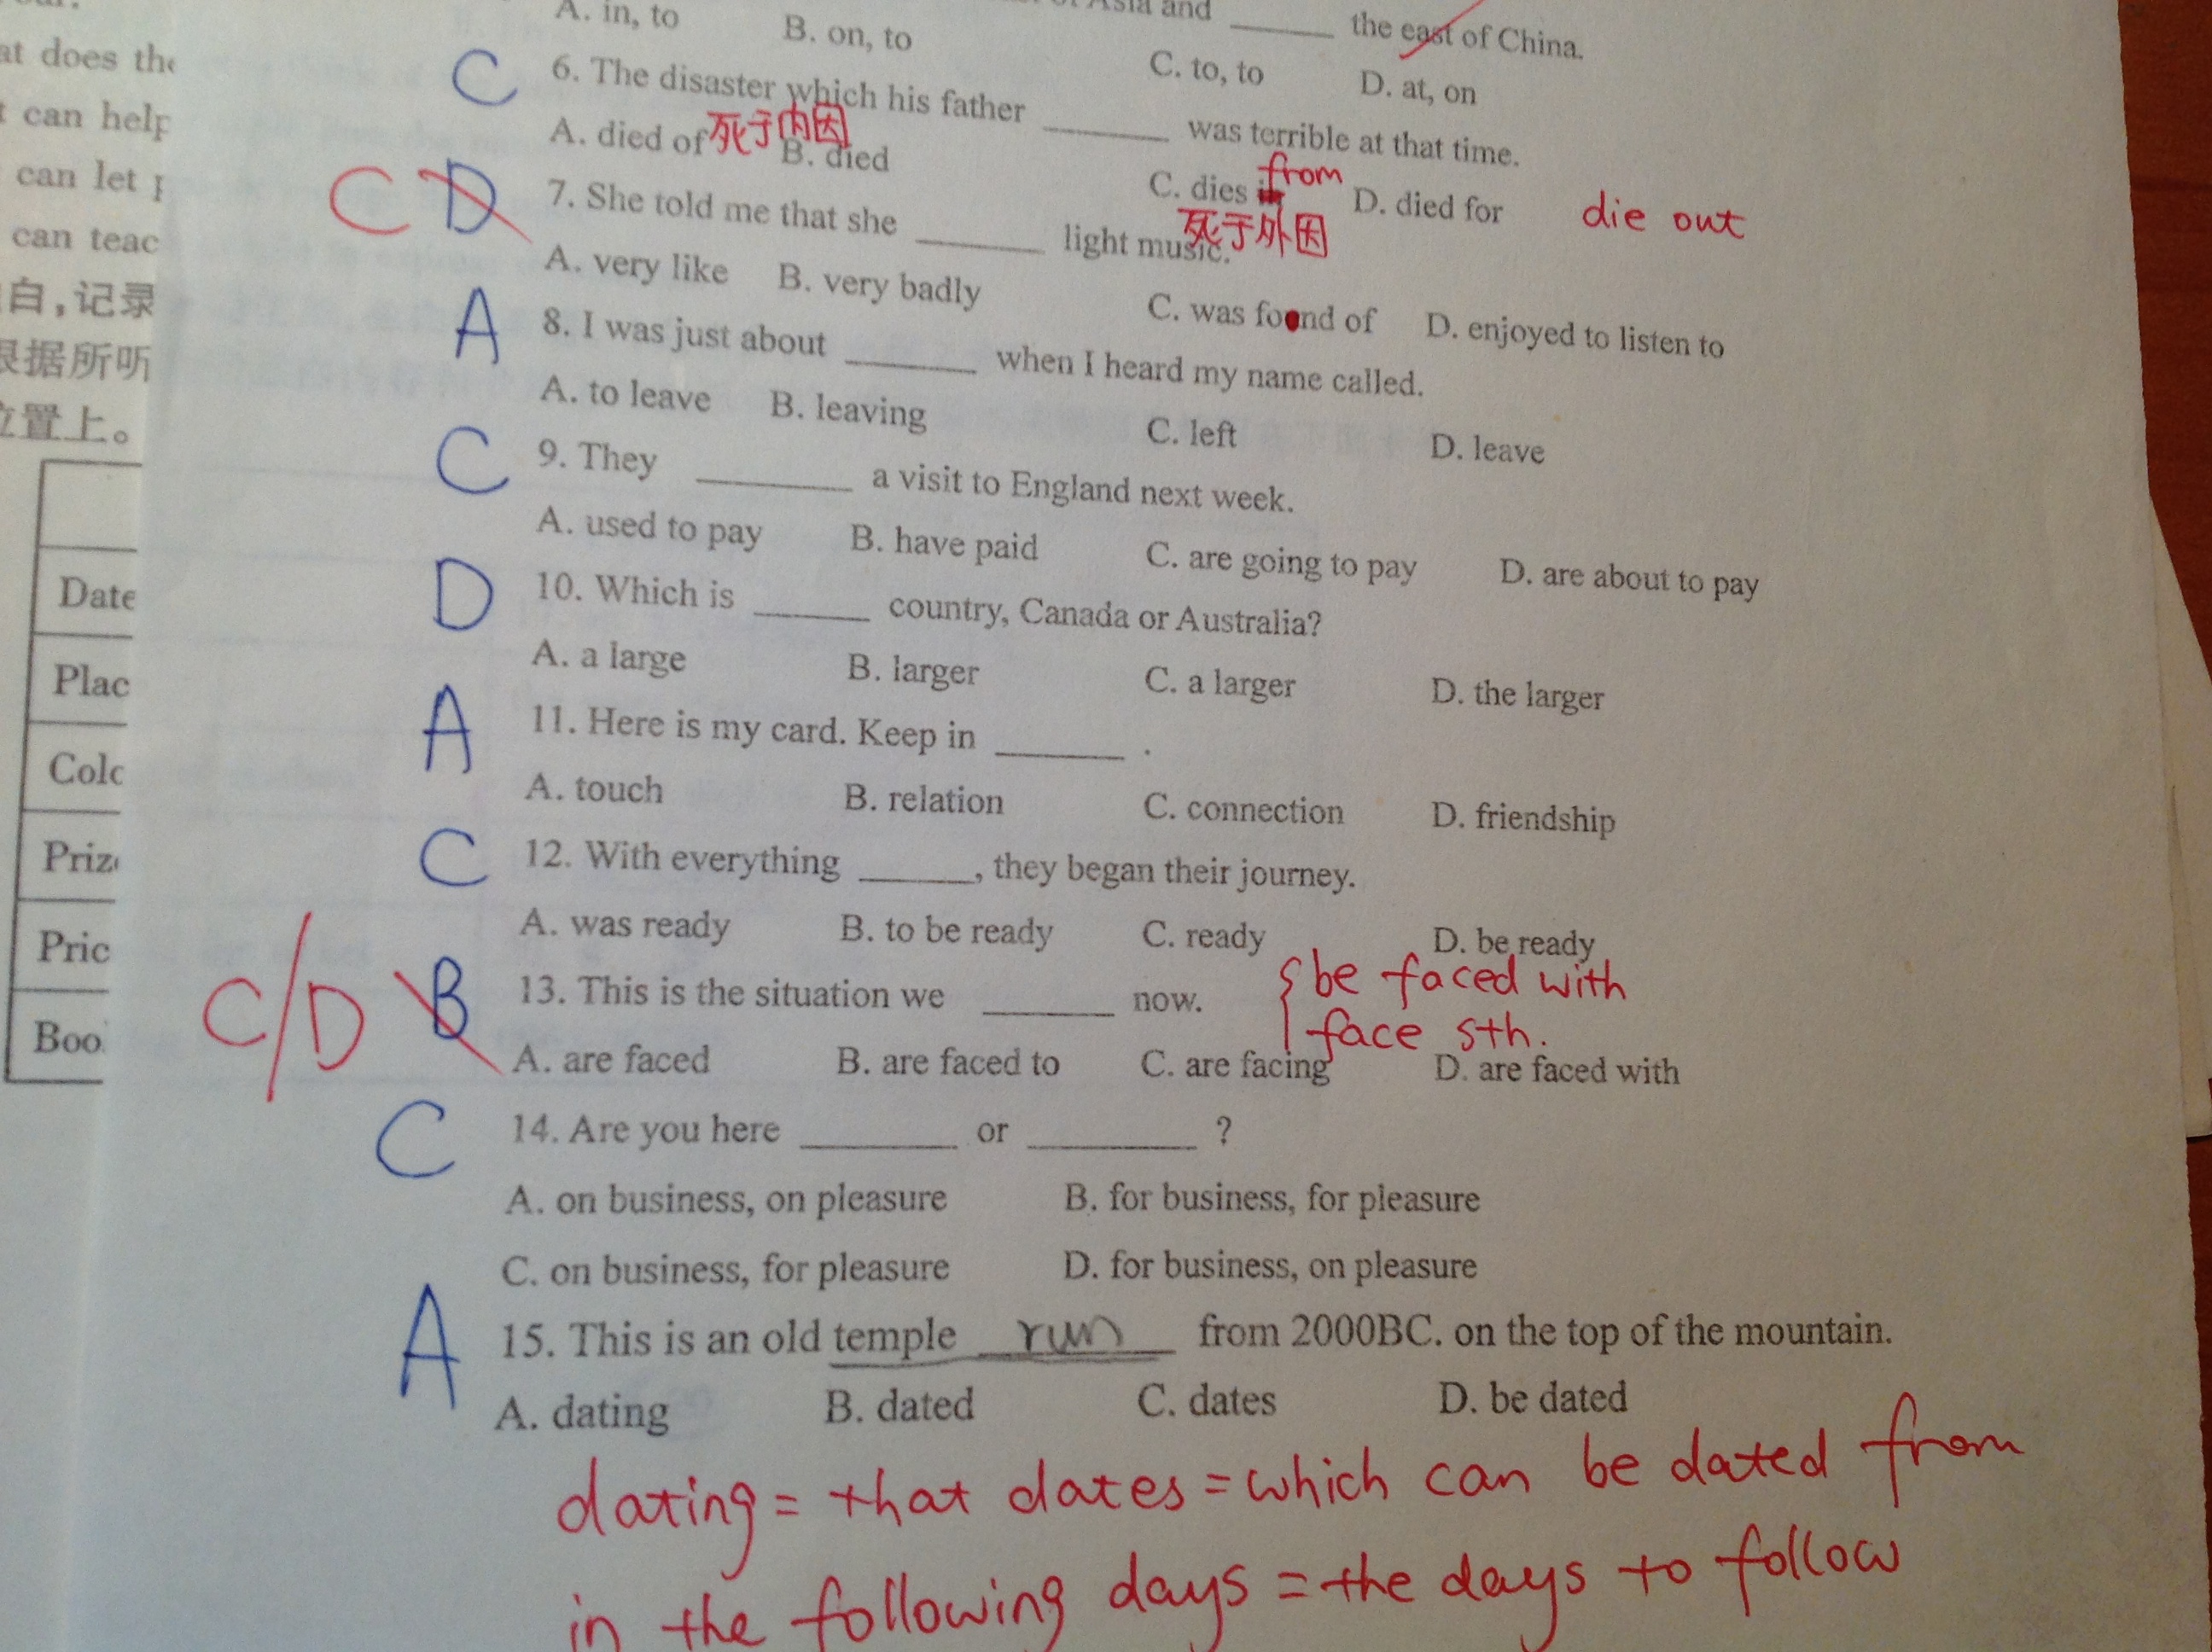 at does the
can help
can let
can teac
白,记录
根据所听
位置上。
Date
Plac
Colc
Prize
Pric
Boo
of Asia and ______ the east of China.
A. in, to B. on, to C. to, to D. at, on
C 6. The disaster which his father ______ was terrible at that time.
A. died of 死于内因 B. died C. dies from D. died for die out
死于外因
C D 7. She told me that she ______ light music.
A. very like B. very badly C. was found of D. enjoyed to listen to
A 8. I was just about ______ when I heard my name called.
A. to leave B. leaving C. left D. leave
C 9. They ______ a visit to England next week.
A. used to pay B. have paid C. are going to pay D. are about to pay
D 10. Which is ______ country, Canada or Australia?
A. a large B. larger C. a larger D. the larger
A 11. Here is my card. Keep in ______ .
A. touch B. relation C. connection D. friendship
C 12. With everything ______, they began their journey.
A. was ready B. to be ready C. ready D. be ready
C/D B 13. This is the situation we ______ now. { be faced with
face sth.
A. are faced B. are faced to C. are facing D. are faced with
C 14. Are you here ______ or ______ ?
A. on business, on pleasure B. for business, for pleasure
C. on business, for pleasure D. for business, on pleasure
A 15. This is an old temple run from 2000BC. on the top of the mountain.
A. dating B. dated C. dates D. be dated
dating = that dates = which can be dated from
in the following days = the days to follow